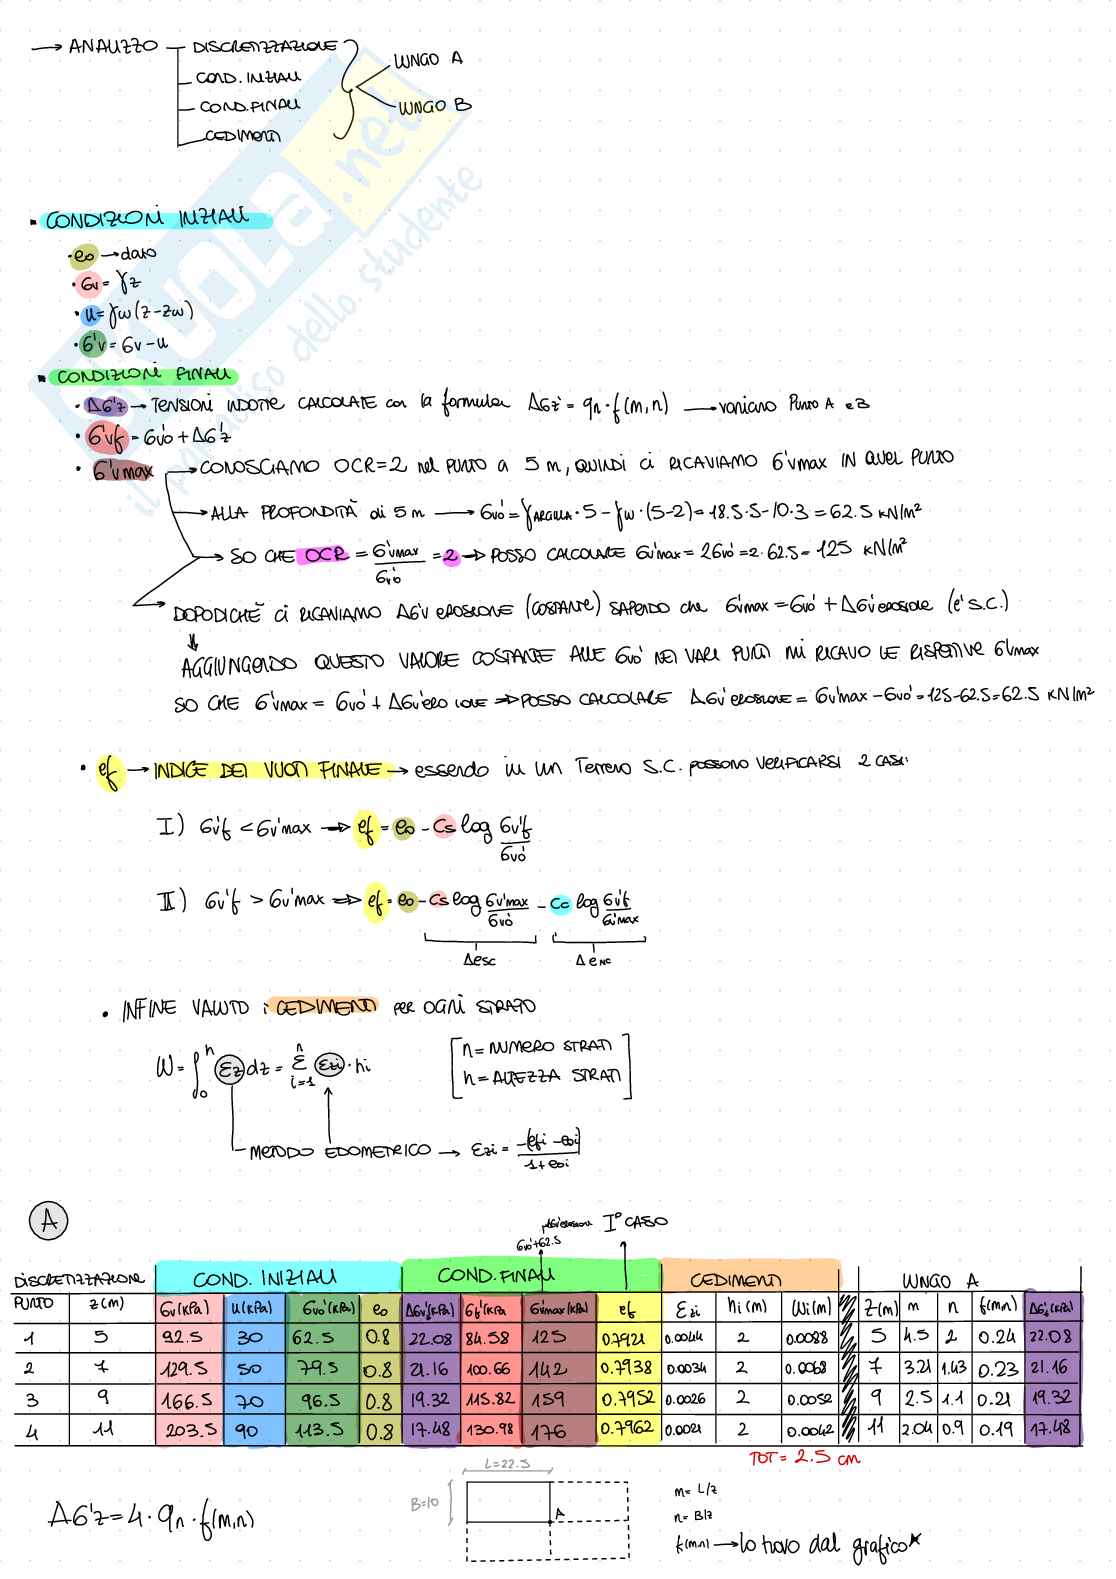 → ANALIZZO — DISCRETIZZAZIONE
COND. INIZIALI
COND. FINALI
CEDIMENTI
LUNGO A
LUNGO B
• CONDIZIONI INIZIALI
• e₀ → dato
• σv = γz
• u = γw (z - zw)
• σ'v = σv - u
• CONDIZIONI FINALI
• Δσ'z → TENSIONI INDOTTE CALCOLATE con la formula Δσz' = qn · f(m,n) → variano Punto A e B
• σ'vf = σv₀' + Δσ'z
• σ'vmax → CONOSCIAMO OCR=2 nel PUNTO a 5 m, QUINDI ci RICAVIAMO σ'vmax IN QUEL PUNTO
→ ALLA PROFONDITÀ di 5 m → σv₀' = γARGILLA · 5 - γw · (5-2) = 18.5·5 - 10·3 = 62.5 kN/m²
→ SO CHE OCR = σ'vmax / σv₀' = 2 → POSSO CALCOLARE σv'max = 2σv₀' = 2·62.5 = 125 kN/m²
→ DOPODICHÈ ci RICAVIAMO Δσ'v EROSIONE (COSTANTE) SAPENDO che σv'max = σv₀' + Δσv'EROSIONE (e' S.C.)
AGGIUNGENDO QUESTO VALORE COSTANTE ALLE σv₀' NEI VARI PUNTI MI RICAVO LE RISPETTIVE σ'vmax
SO CHE σ'vmax = σv₀' + Δσv'EROSIONE ⇒ POSSO CALCOLARE Δσv'EROSIONE = σv'max - σv₀' = 125 - 62.5 = 62.5 kN/m²
• ef → INDICE DEI VUOTI FINALE → essendo in un Terreno S.C. possono VERIFICARSI 2 CASI:
I) σv'f < σv'max → ef = e₀ - Cs log σv'f / σv₀'
II) σv'f > σv'max ⇒ ef = e₀ - Cs log σv'max / σv₀' - Cc log σv'f / σv'max
Δesc ΔeNC
• INFINE VALUTO i CEDIMENTI PER OGNI STRATO
W = ∫₀ʰ εz dz = Σ i=1 n εzi · hi
[n = NUMERO STRATI
h = ALTEZZA STRATI]
METODO EDOMETRICO → εzi = -(efi - e₀i) / 1+e₀i
A
I° CASO
σv₀'+62.5
DISCRETIZZAZIONE COND. INIZIALI COND. FINALI CEDIMENTI LUNGO A
PUNTO z(m) σv(kPa) u(kPa) σv₀'(kPa) e₀ Δσv'(kPa) σf'(kPa σ'vmax(kPa) ef εzi hi(m) Wi(m) z(m) m n f(m,n) Δσ'z(kPa)
1 5 92.5 30 62.5 0.8 22.08 84.58 125 0.7921 0.0044 2 0.0088 5 4.5 2 0.24 22.08
2 7 129.5 50 79.5 0.8 21.16 100.66 142 0.7938 0.0034 2 0.0068 7 3.21 1.43 0.23 21.16
3 9 166.5 70 96.5 0.8 19.32 115.82 159 0.7952 0.0026 2 0.0052 9 2.5 1.1 0.21 19.32
4 11 203.5 90 113.5 0.8 17.48 130.98 176 0.7962 0.0021 2 0.0042 11 2.04 0.9 0.19 17.48
TOT = 2.5 cm
L=22.5
B=10
A
Δσ'z = 4 · qn · f(m,n)
m = L/z
n = B/z
f(m,n) → lo trovo dal grafico*
SKUOLA.net
il paradiso dello studente